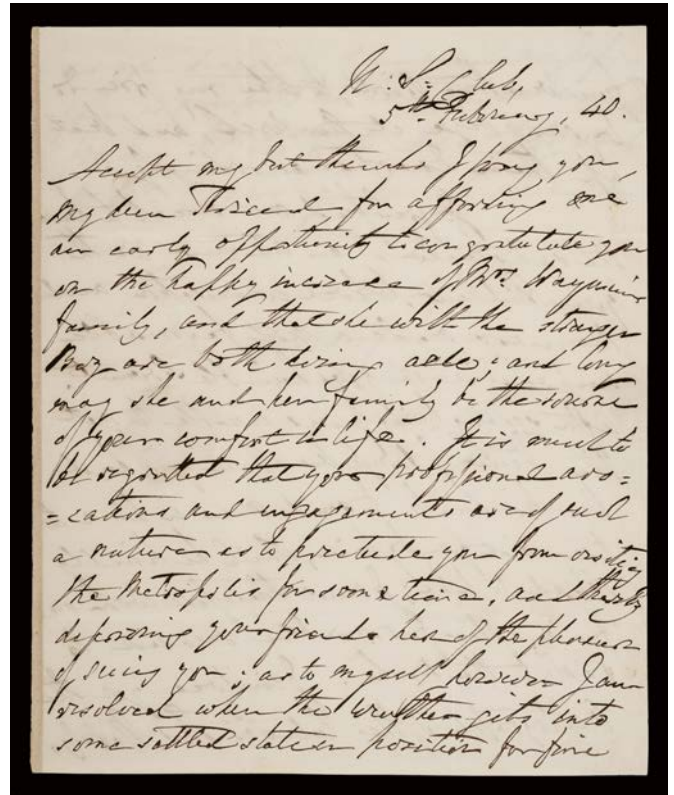 U: S: Club,
5th February, 40.
Accept my best thanks I pray you,
my dear friend, for affording me
an early opportunity to congratulate you
on the happy increase of Mrs
family, and that she with the stranger
Boy are both doing well; and long
may she and her family be the source
of your comfort in life. It is much to
be regretted that your professional avo=
=cations and engagements are of such
a nature as to preclude you from visiting
the Metropolis for some time, and thereby
depriving your friends here of the pleasure
of seeing you; as to myself however I am
resolved when the weather gets into
some settled state or position for fine